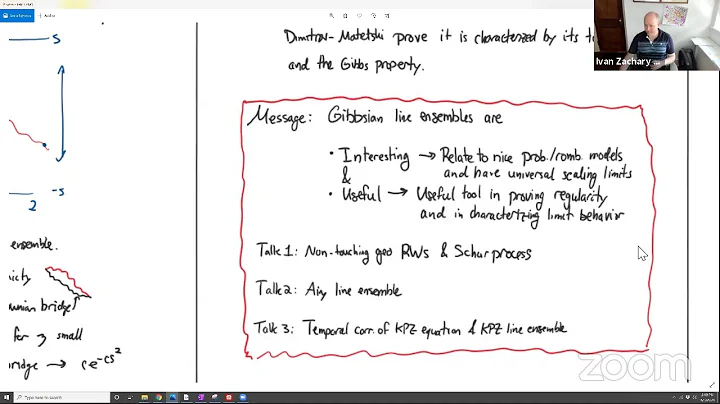 S
-S
2
ensemble.
bridge
for
small
→ ce^-cs²
Dimitrov-Matetski prove it is characterized by its
and the Gibbs property.
Message: Gibbsian line ensembles are
• Interesting → Relate to nice prob./comb. models
& and have universal scaling limits
• Useful → Useful tool in proving regularity
and in characterizing limit behavior
Talk 1: Non-touching geo RWs & Schur process
Talk 2: Airy line ensemble
Talk 3: Temporal corr. of KPZ equation & KPZ line ensemble
Ivan Zachary
zoom
Type here to search